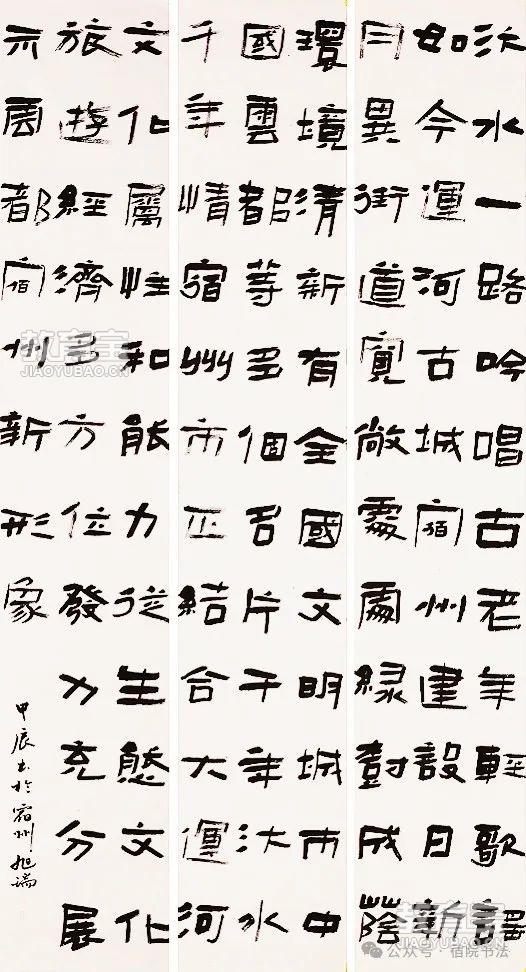 汴水一路吟唱古老年輕歌謠
如今運河古城宿州建設日新
月異街道寬敞處處緑樹成蔭
環境清新有全國文明城市中
國雲都等多個名片千年汴水
千年情宿州市正結合大運河
文化屬性和能力從生態文化
旅遊經濟多方位發力充分展
示雲都宿州新形象
甲辰書於宿州旭瑞
教育宝
JIAOYUBAO.CN
教育宝
JIAOYUBAO.CN
公众号 · 宿院书法